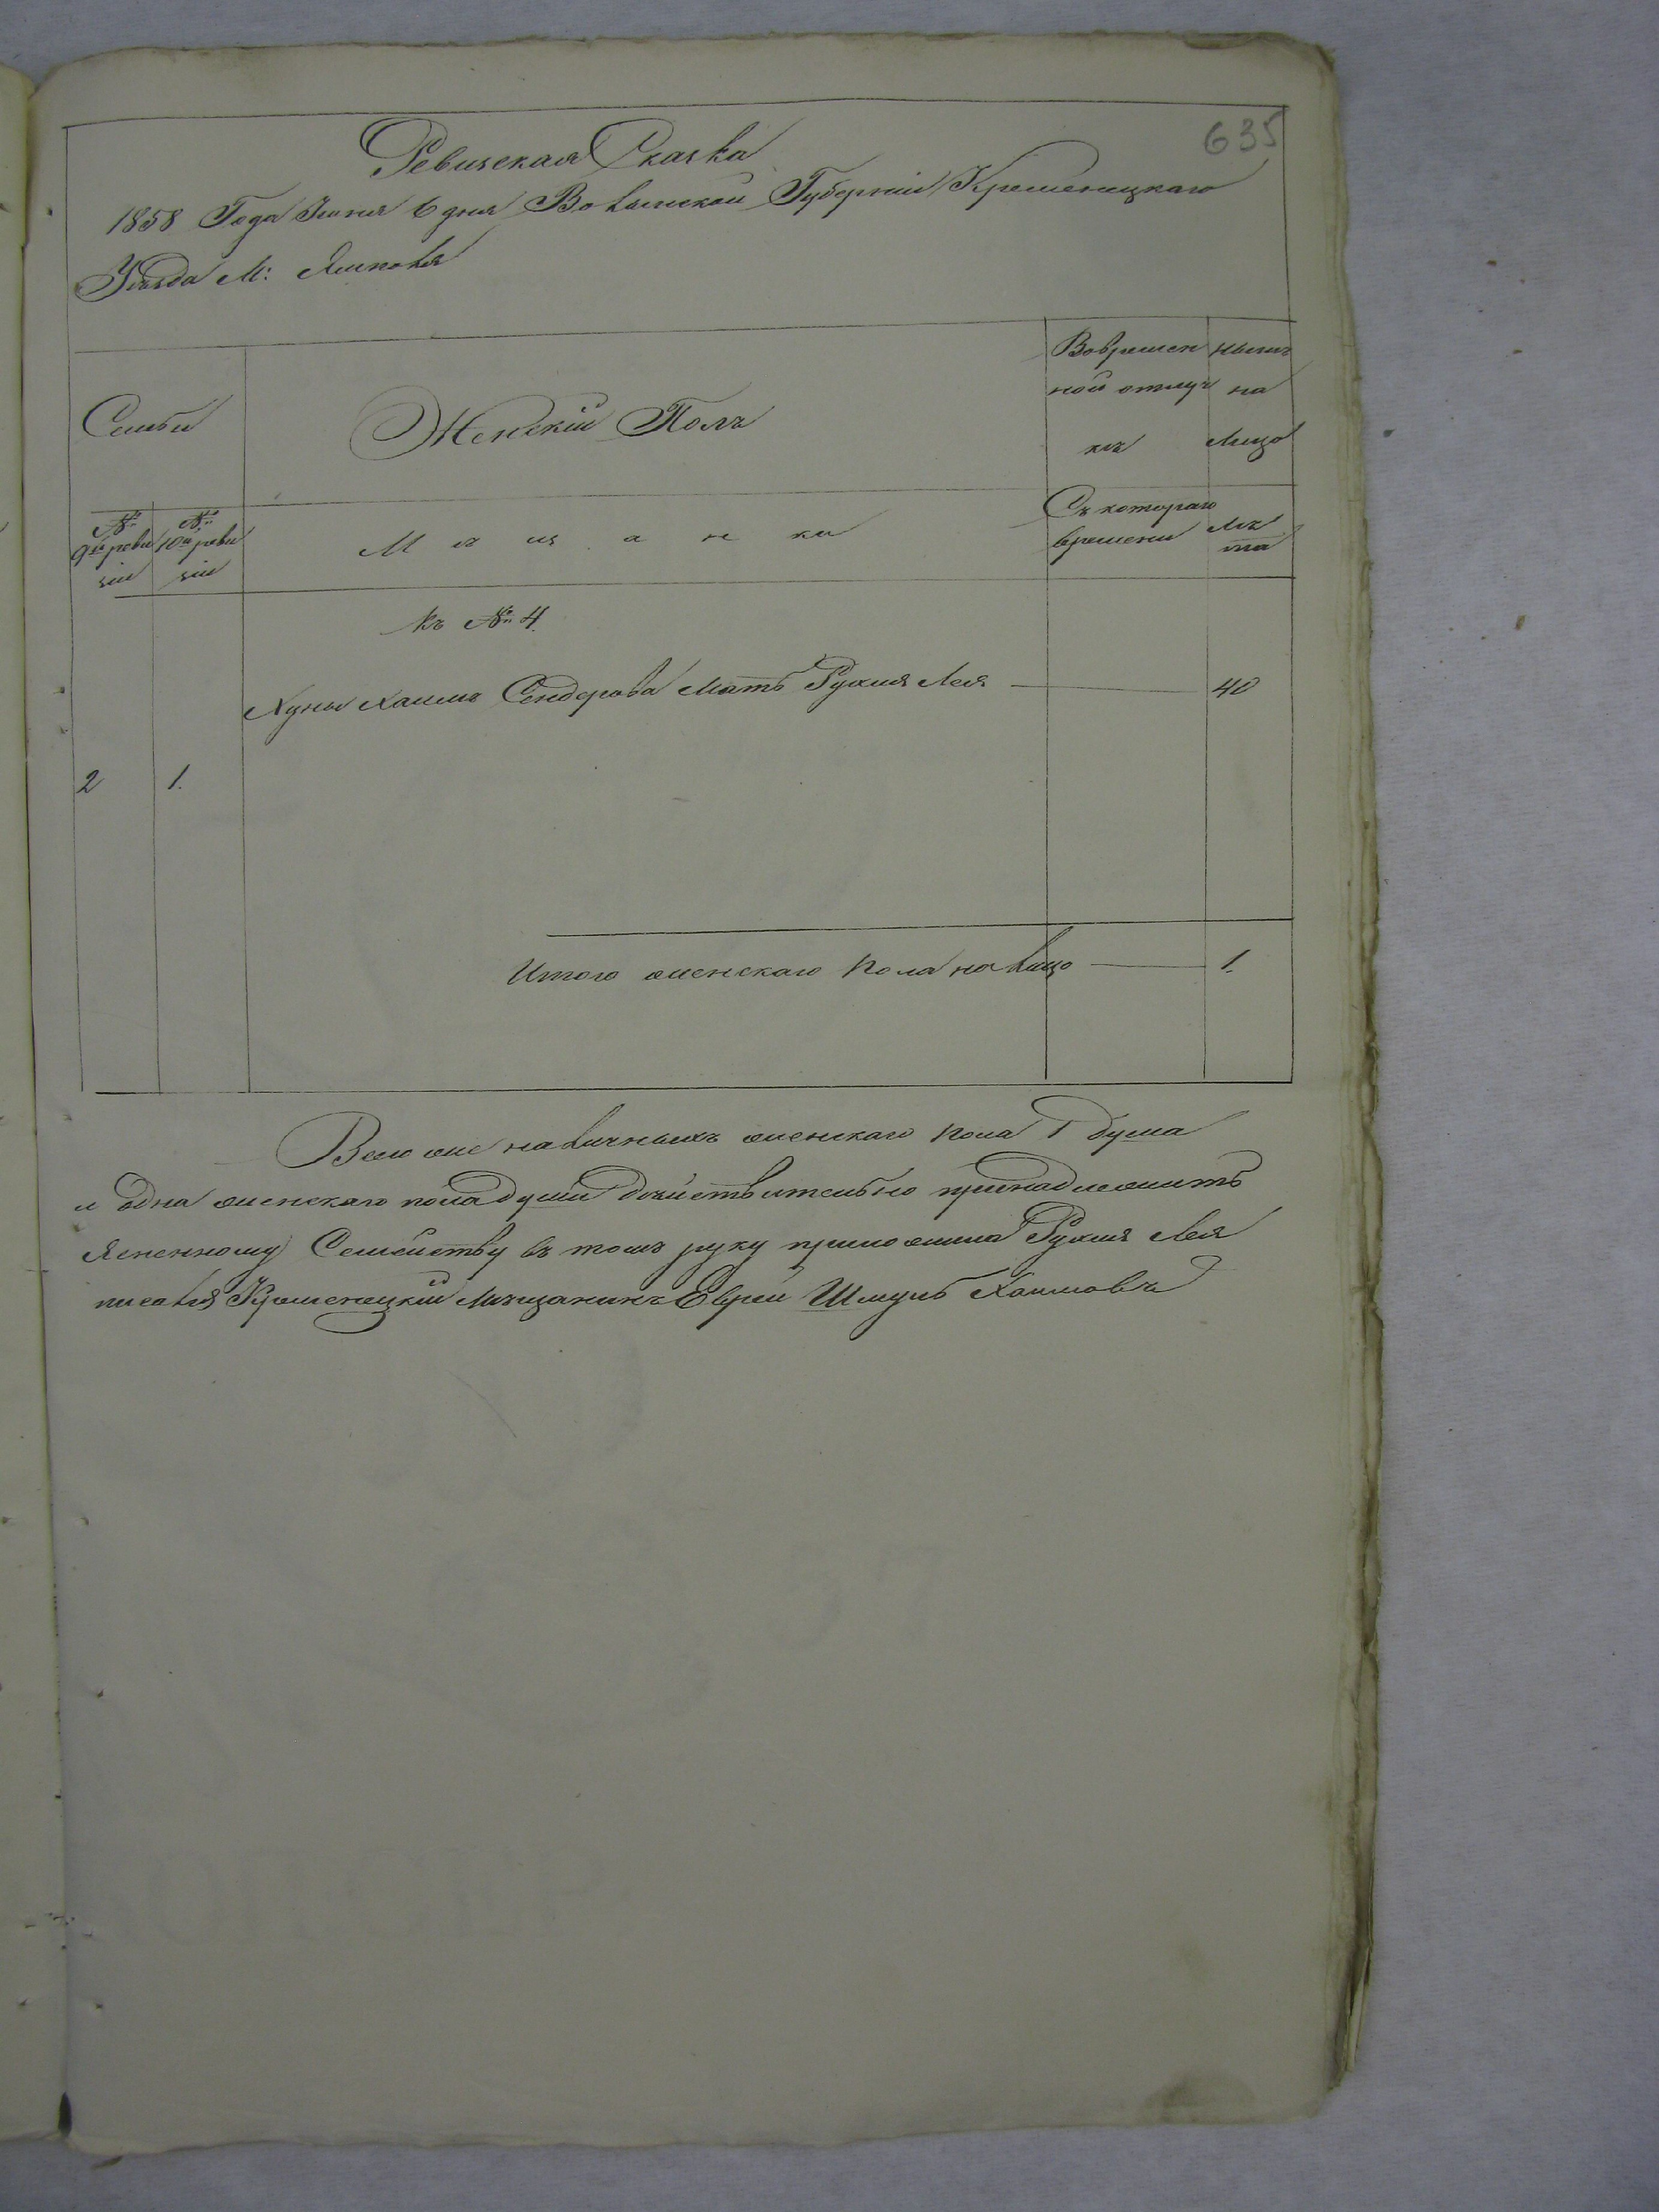 635
Ревизская Сказка
1858 Года Июня 6 дня Волынской Губерніи Кременецкаго
Уѣзда М: Ямполя
Семьи
Женскій Полъ
Вовремен
ной отлуч
кѣ
нынѣ
на
Лицо
№
9й реви
зіи
№
10й реви
зіи
М ѣ щ а н ки
Съ котораго
времени
Лѣ
та
къ № 4
Хуны Хаимъ Сендерова Мать Рухля Лея 40
2 1.
Итого женскаго пола на лицо 1.
Всего же наличныхъ женскаго пола 1 душа
и одна женскаго пола души дѣйствительно принадлежитъ
Семейству въ томъ руку приложила Рухля Лея
писалъ Кременецкій Мѣщанинъ Еврей Шмуль Хаимовъ